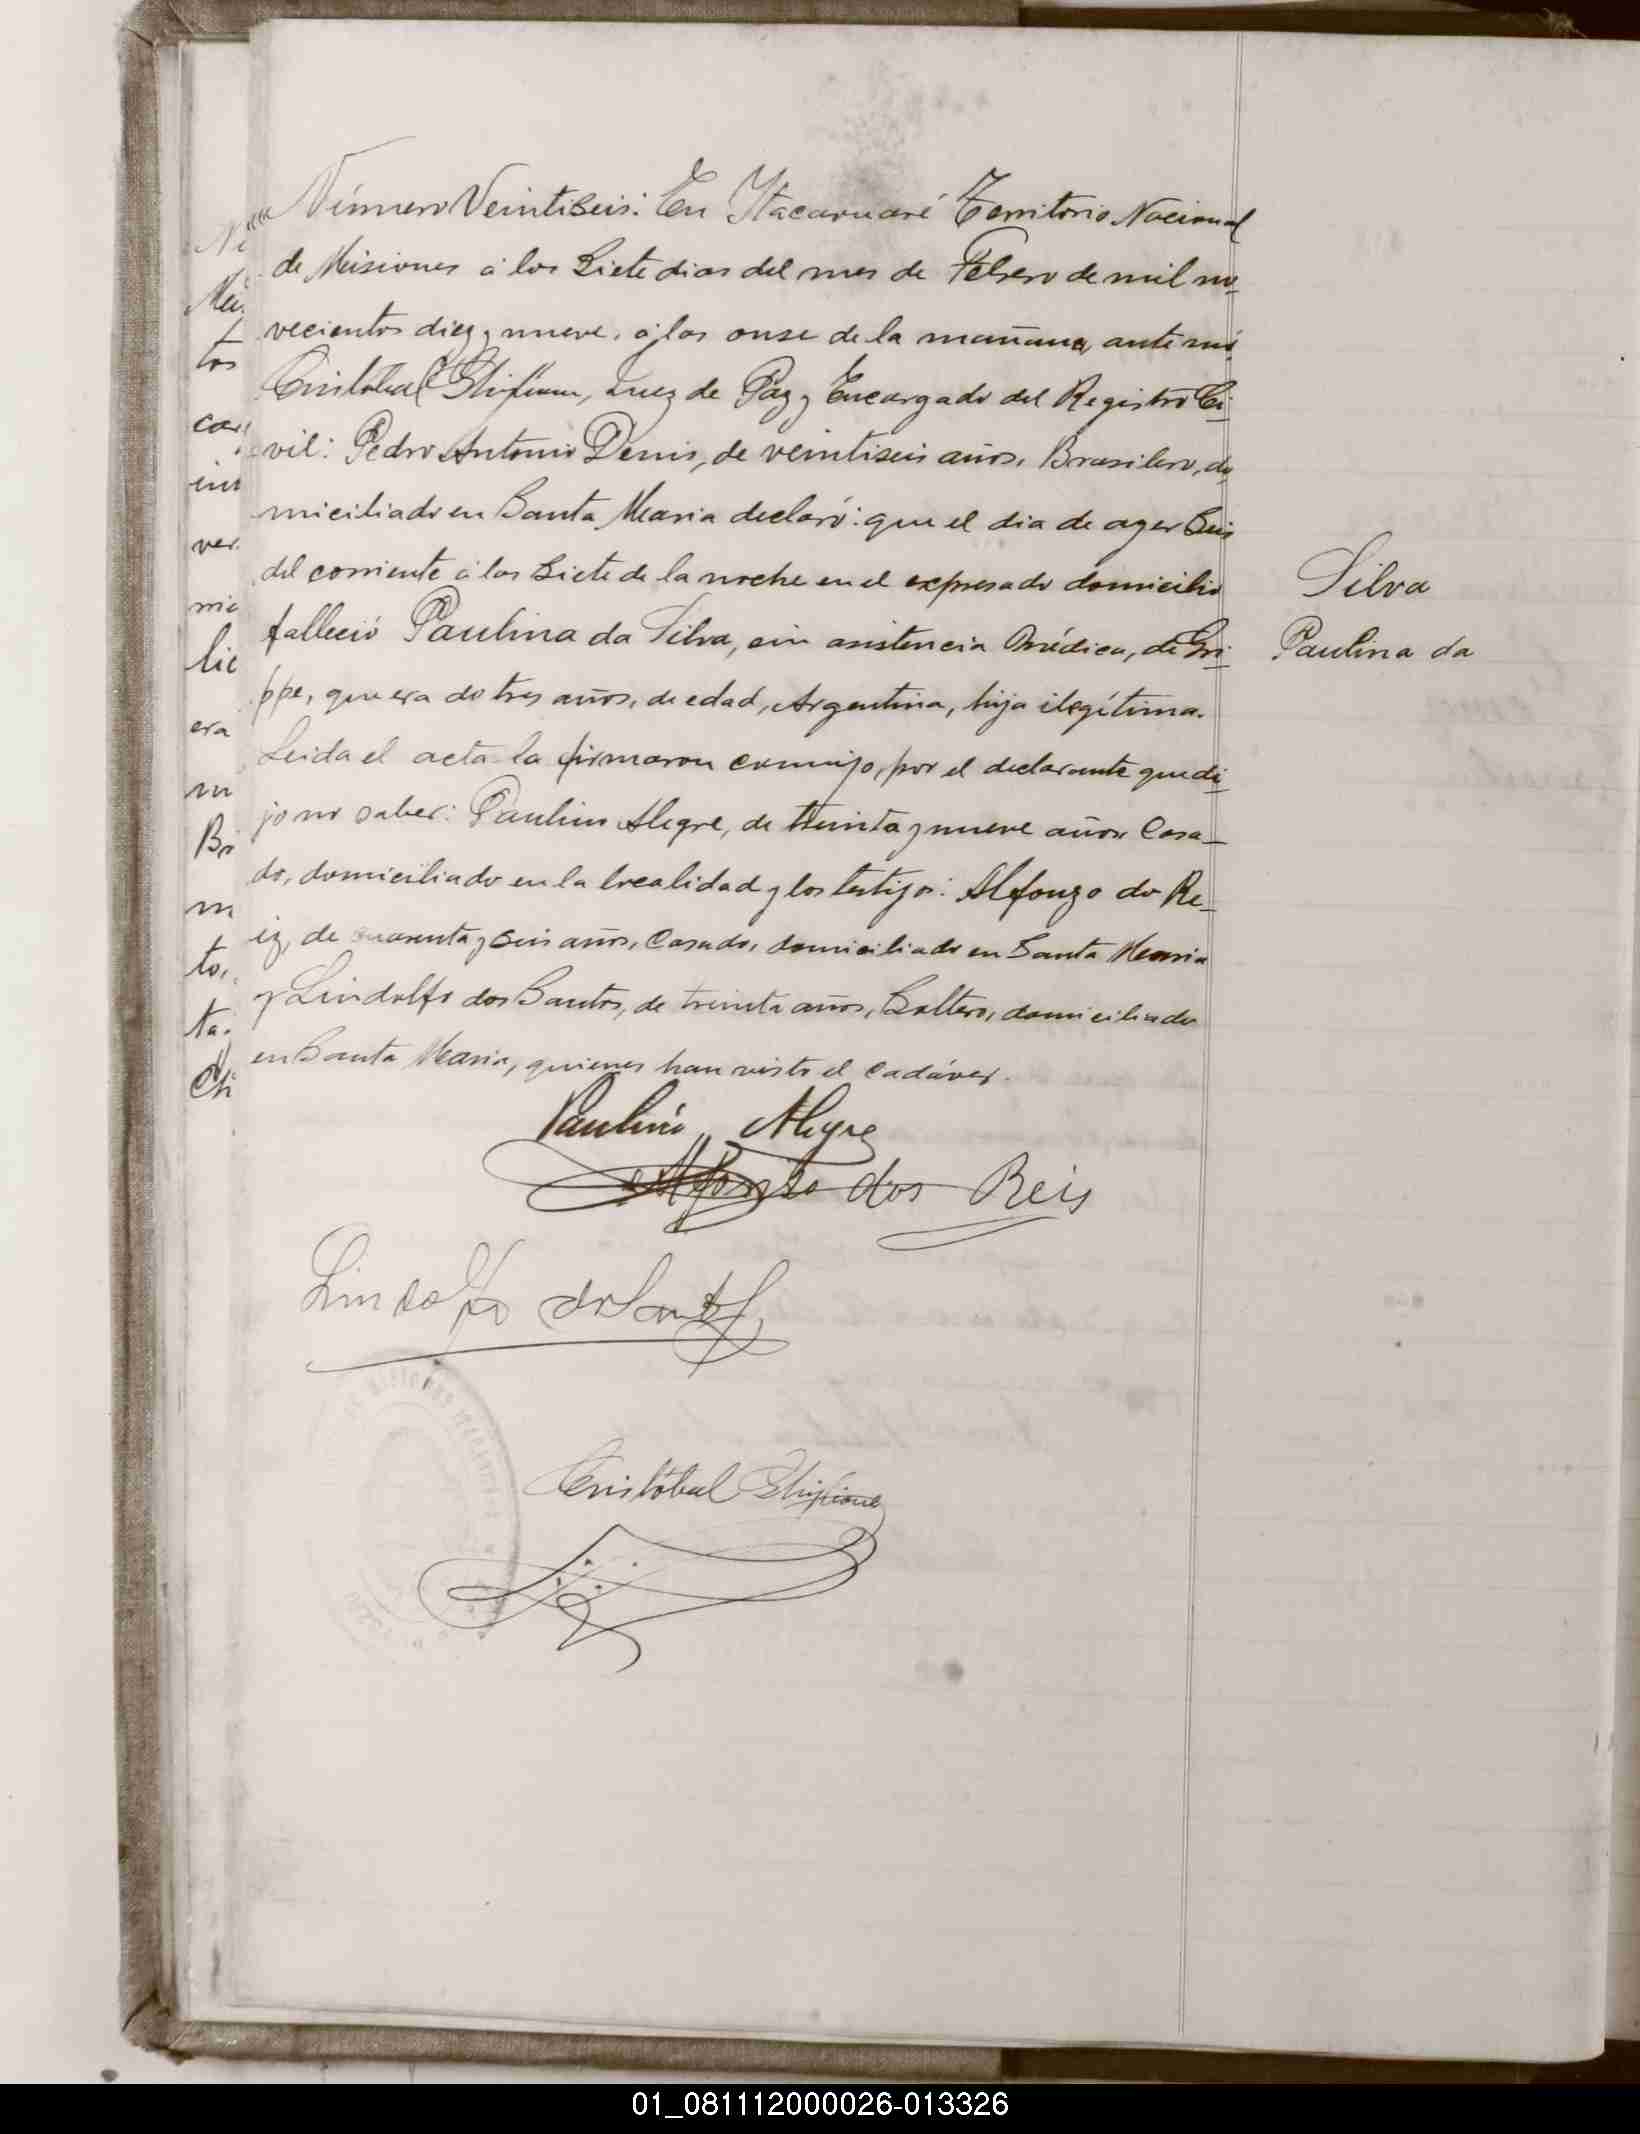 Número Veintiseis: En Itacaruaré Territorio Nacional
de Misiones á los Siete dias del mes de Febrero de mil no-
vecientos diez y nueve, á las onse de la mañana, ante mí
Cristóbal, Juez de Paz y Encargado del Registro Ci-
vil: Pedro Antonio Denis, de veintiseis años, Brasilero, do-
miciliado en Santa Maria declaró: que el dia de ayer Seis
del corriente á las Siete de la noche en el expresado domicilio
falleció Paulina da Silva, sin asistencia médica, de Gri-
ppe, que era de tres años, de edad, Argentina, hija ilegítima.
Leida el acta la firmaron conmigo, por el declarante que di-
jo no saber: Paulino Alegre, de treinta y nueve años Casa-
do, domiciliado en la localidad y los testigos: Alfonzo do Re-
iz, de cuarenta y seis años, Casado, domiciliado en Santa Maria
y Lindolfo dos Santos, de treinta años, Soltero, domiciliado
en Santa Maria, quienes han visto el cadáver.
Paulino Alegre
Alfonso dos Reis
Lindolfo
Cristóbal
Silva
Paulina da
Mi
tos
ver.
mi
lic
era
m
Br
m
to,
ta.
01_081112000026-013326